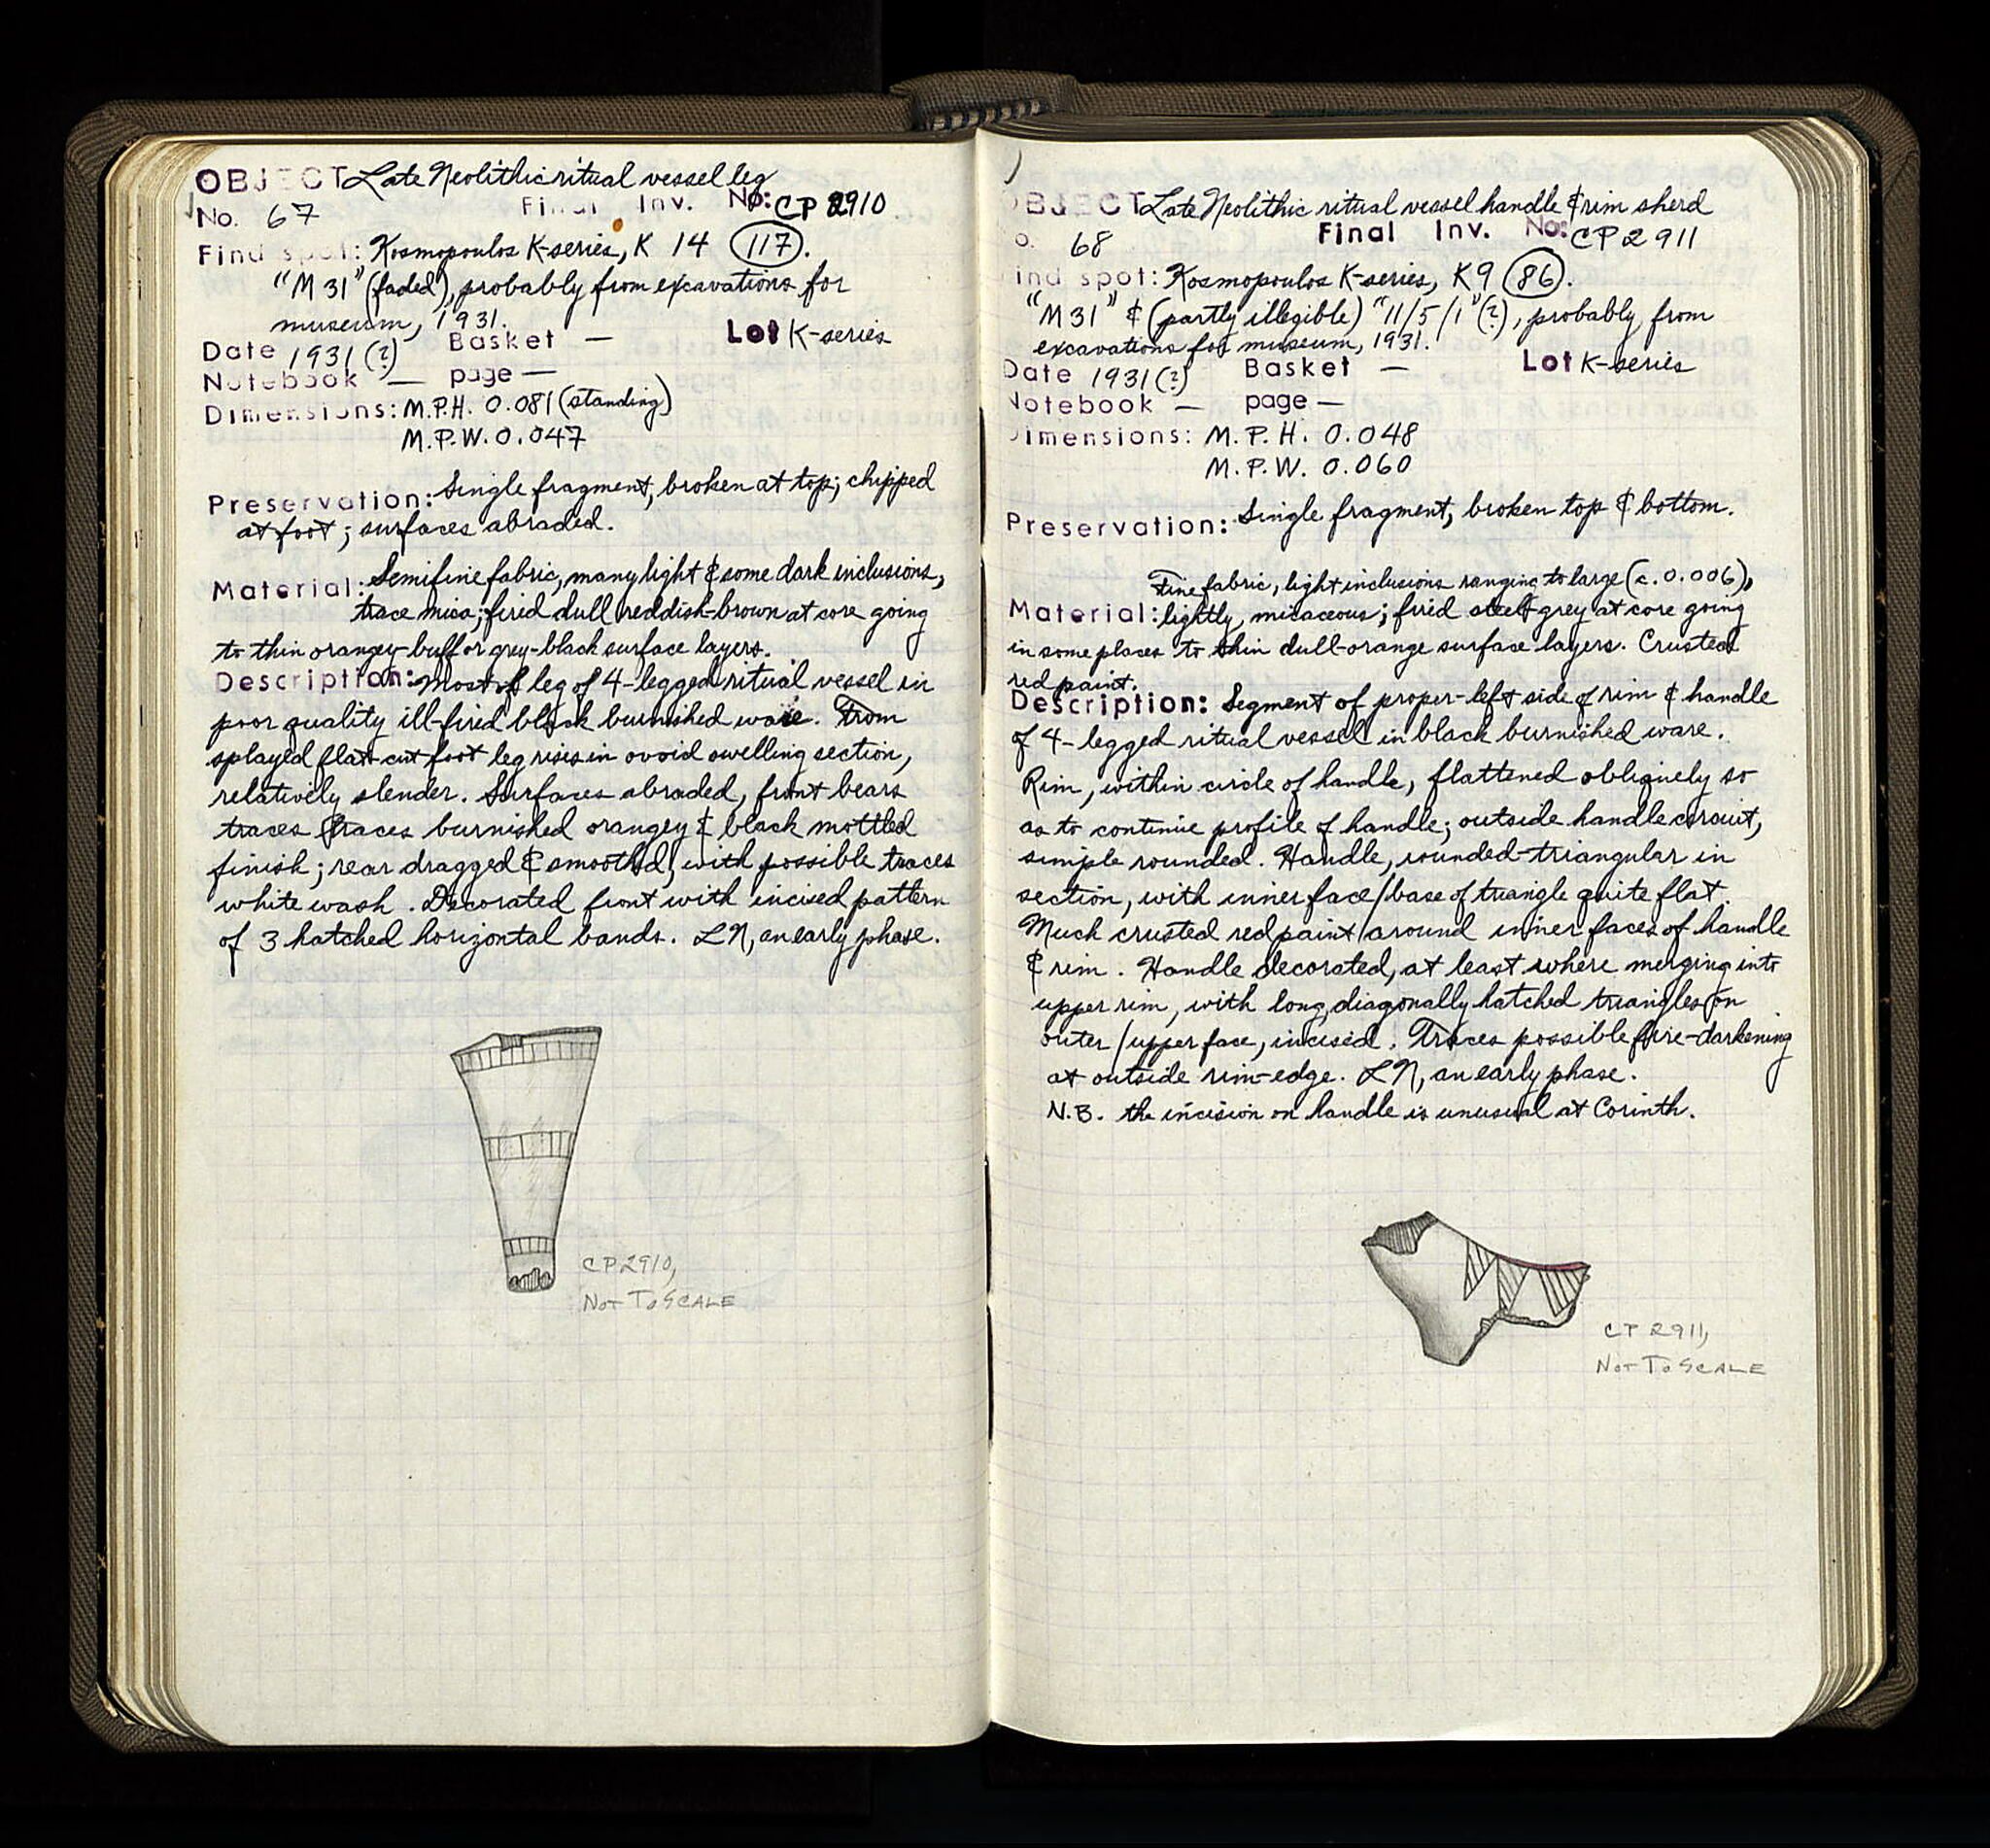 OBJECT Late Neolithic ritual vessel leg
No. 67 Final Inv. No: CP 2910
Find spot: Kosmopoulos K-series, K 14 (117).
"M 31" (faded), probably from excavations for
museum, 1931.
Date 1931(?) Basket — Lot K-series
Notebook — page —
Dimensions: M.P.H. 0.081 (standing)
M.P.W. 0.047
Preservation: Single fragment, broken at top; chipped
at foot; surfaces abraded.
Material: Semifine fabric, many light & some dark inclusions,
trace mica; fired dull reddish-brown at core going
to thin orangey-buff or grey-black surface layers.
Description: Most of leg of 4-legged ritual vessel in
poor quality ill-fired black burnished ware. From
splayed flat-cut foot leg rises in ovoid swelling section,
relatively slender. Surfaces abraded, front bears
traces traces burnished orangey & black mottled
finish; rear dragged & smoothd, with possible traces
white wash. Decorated front with incised pattern
of 3 hatched horizontal bands. LN, an early phase.
CP 2910,
NOT TO SCALE
OBJECT Late Neolithic ritual vessel handle & rim sherd
o. 68 Final Inv. No: CP 2911
ind spot: Kosmopoulos K-series, K9 (86).
"M31" & (partly illegible) "11/5/1"(?), probably from
excavations for museum, 1931.
Date 1931(?) Basket — Lot K-series
Notebook — page —
Dimensions: M.P.H. 0.048
M.P.W. 0.060
Preservation: Single fragment, broken top & bottom.
Fine fabric, light inclusions ranging to large (c. 0.006),
Material: lightly micaceous; fired steel-grey at core going
in some places to thin dull-orange surface layers. Crusted
red paint.
Description: Segment of proper-left side of rim & handle
of 4-legged ritual vessel in black burnished ware.
Rim, within circle of handle, flattened obliquely so
as to continue profile of handle; outside handle circuit,
simple rounded. Handle, rounded-triangular in
section, with inner face/base of triangle quite flat.
Much crusted red paint around inner faces of handle
& rim. Handle decorated, at least where merging into
upper rim, with long, diagonally hatched triangles on
outer/upper face, incised. Traces possible fire-darkening
at outside rim-edge. LN, an early phase.
N.B. the incision on handle is unusual at Corinth.
CP 2911,
NOT TO SCALE